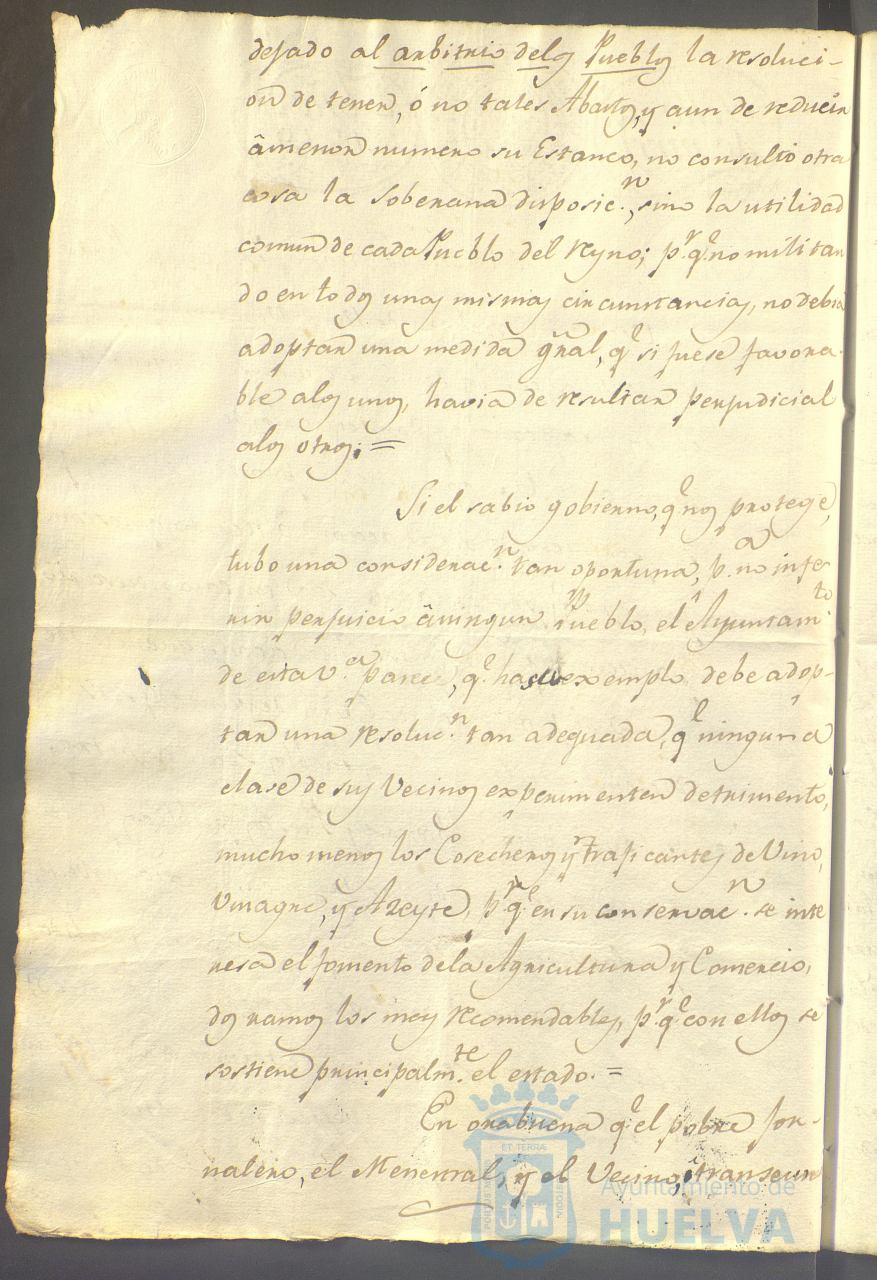 dejado al arbitrio delos Pueblos la resoluci-
on de tener, ó no tales Abastos, y aun de reducir
âmenor numero su Estanco, no consultó otra
cosa la soberana disposic.n, sino la utilidad
comun de cada Pueblo del Reyno; p.r q.e no militan
do en todos unas mismas circunstancias, no debia
adoptar una medida gral, q.e si fuese favora-
ble alos unos, havia de resultar perjudicial
alos otros; =
Si el sabio gobierno, q.e nos protege,
tubo una considerac.n tan oportuna, p.a no infe
rir perjuicio âningun Pueblo, el Ayuntam.to
de esta V.a parece, q.e ha su exemplo debe adop-
tar una resoluc.n tan adequada, q.e ninguna
clase de sus Vecinos experimenten detrimento,
mucho menos los Cosecheros y Traficantes de Vino,
Vinagre, y Azeyte, p.r q.e en su conservac.n se inte
resa el fomento dela Agricultura y Comercio,
dos ramos los mas recomendables, p.r q.e con ellos se
sostiene principalm.te el estado. =
En orabuena q.e el pobre jor-
nalero, el Menestral, y el Vecino, transeun
ET TERRÆ
Ayuntamiento de
HUELVA